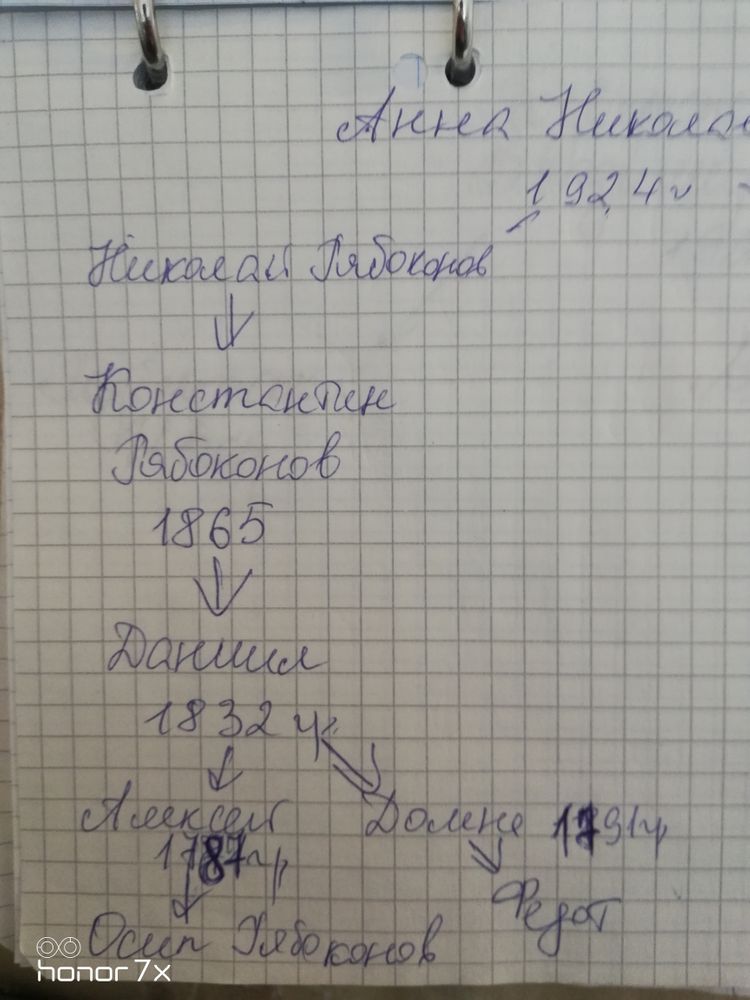 Анна Никола
1924г
Николай Рябоконов
Константин
Рябоконов
1865
Даниил
1832 гр
Алексей
Домне 1791гр
1787гр
Федот
Осип Рябоконов
honor 7x